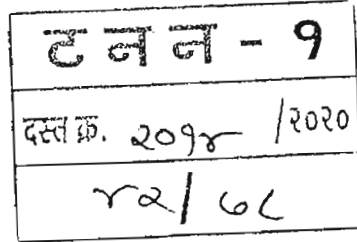 ट न न - १
दस्त क्र. २०१४ /२०२०
४२/ ७८